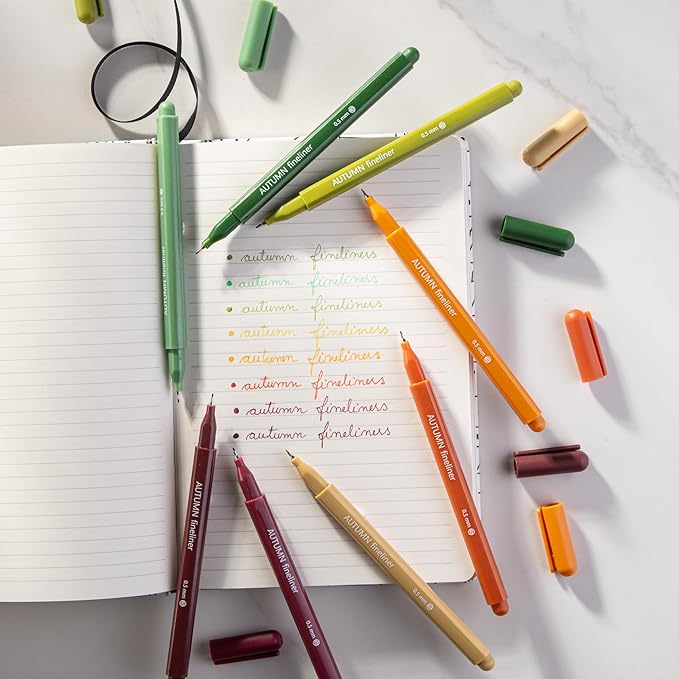 AUTUMN fineliner 0.5 mm
AUTUMN fineliner 0.5 mm
AUTUMN fineliner 0.5 mm
AUTUMN fineliner 0.5 mm
autumn fineliness
autumn fineliness
autumn fineliness
autumn fineliness
autumn fineliness
autumn fineliness
autumn fineliness
autumn fineliness
AUTUMN fineliner 0.5 mm
AUTUMN fineliner 0.5 mm
AUTUMN fineliner 0.5 mm
AUTUMN fineliner 0.5 mm